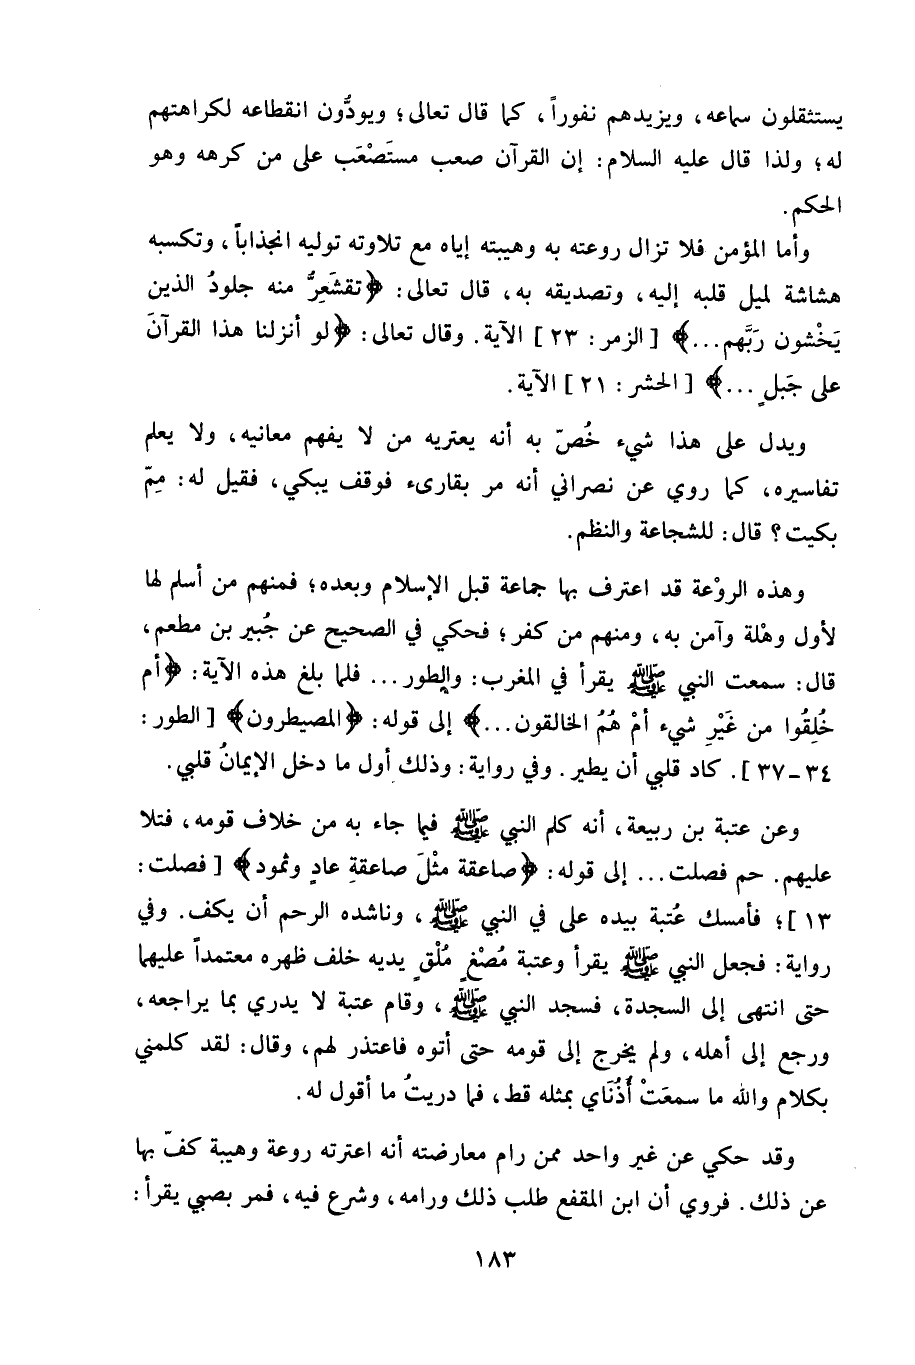 يستثقلون سماعه، ويزيدهم نفوراً، كما قال تعالى؛ ويودُّون انقطاعه لكراهتهم
له؛ ولذا قال عليه السلام: إن القرآن صعب مستَصْعَب على من كرهه وهو
الحكم.
وأما المؤمن فلا تزال روعته به وهيبته إياه مع تلاوته توليه انجذاباً، وتكسبه
هشاشة لميل قلبه إليه، وتصديقه به، قال تعالى: ﴿تقشَعِرُّ منه جلودُ الذين
يَخْشون رَبَّهم...﴾ [الزمر: ٢٣] الآية. وقال تعالى: ﴿لو أنزلنا هذا القرآنَ
على جَبلٍ ...﴾ [الحشر: ٢١] الآية.
ويدل على هذا شيء خُصّ به أنه يعتريه من لا يفهم معانيه، ولا يعلم
تفاسيره، كما روي عن نصراني أنه مر بقارىء فوقف يبكي، فقيل له: مِمّ
بكيت؟ قال: للشجاعة والنظم.
وهذه الروْعة قد اعترف بها جماعة قبل الإسلام وبعده؛ فمنهم من أسلم لها
لأول وهْلة وآمن به، ومنهم من كفر؛ فحكي في الصحيح عن جُبير بن مطعم،
قال: سمعت النبي ﷺ يقرأ في المغرب: والطور... فلما بلغ هذه الآية: ﴿أم
خُلِقُوا من غَيْرِ شيء أمْ هُمُ الخالقون...﴾ إلى قوله: ﴿المصيطرون﴾ [الطور:
٣٤-٣٧]. كاد قلبي أن يطير. وفي رواية: وذلك أول ما دخل الإيمانُ قلبي.
وعن عتبة بن ربيعة، أنه كلم النبي ﷺ فيما جاء به من خلاف قومه، فتلا
عليهم. حم فصلت... إلى قوله: ﴿صاعقة مثْلَ صاعقةِ عادٍ وثمود﴾ [فصلت:
١٣]؛ فأمسك عُتبة بيده على في النبي ﷺ، وناشده الرحم أن يكف. وفي
رواية: فجعل النبي ﷺ يقرأ وعتبة مُصْغٍ مُلْقٍ يديه خلف ظهره معتمداً عليهما
حتى انتهى إلى السجدة، فسجد النبي ﷺ، وقام عتبة لا يدري بما يراجعه،
ورجع إلى أهله، ولم يخرج إلى قومه حتى أتوه فاعتذر لهم، وقال: لقد كلمني
بكلام والله ما سمعَتْ أُذُنَاي بمثله قط، فما دريتُ ما أقول له.
وقد حكي عن غير واحد ممن رام معارضته أنه اعترته روعة وهيبة كفّ بها
عن ذلك. فروي أن ابن المقفع طلب ذلك ورامه، وشرع فيه، فمر بصبي يقرأ:
١٨٣